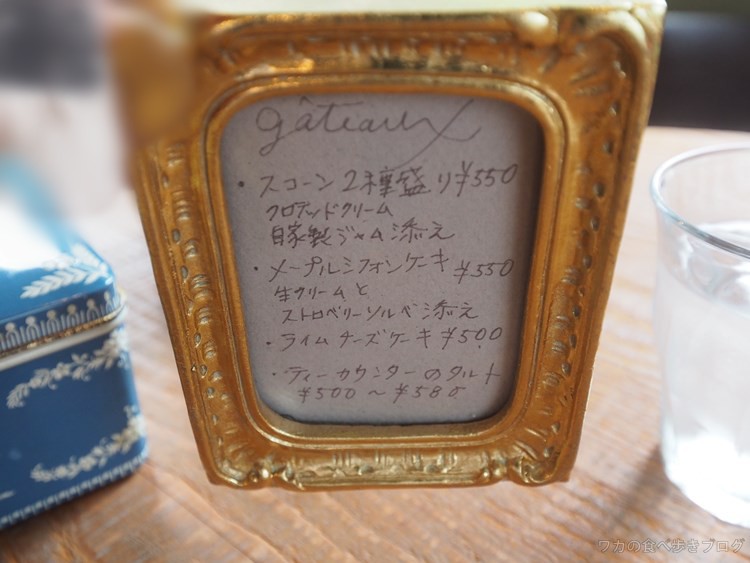 gâteaux
・スコーン 2種盛り ¥550
クロテッドクリーム
自家製ジャム添え
・メープルシフォンケーキ ¥550
生クリームと
ストロベリーソルベ添え
・ライムチーズケーキ ¥500
・ティーカウンターのタルト
¥500〜¥580
ワカの食べ歩きブログ